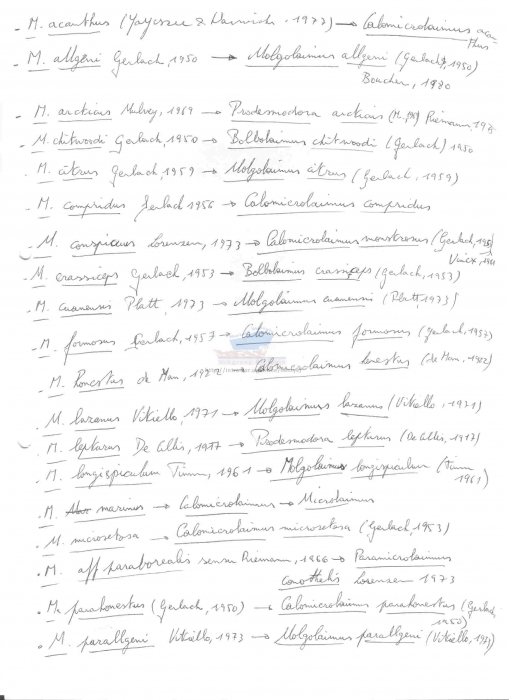 - M. acanthus (Jayasree & Warwick, 1977) → Calomicrolaimus acanthus
- M. allgeni Gerlach, 1950 → Molgolaimus allgeni (Gerlach, 1950)
Boucher, 1980
- M. arcticus Mulvey, 1969 → Prodesmodora arcticus Riemann,
- M. chitwoodi Gerlach, 1950 → Bolbolaimus chitwoodi (Gerlach) 1950
- M. citrus Gerlach, 1959 → Molgolaimus citrus (Gerlach, 1959)
- M. compridus Gerlach 1956 → Calomicrolaimus compridus
- M. conspicuus Lorenzen, 1973 → Calomicrolaimus monstrosus (Gerlach,
Vincx,
- M. crassiceps Gerlach, 1953 → Bolbolaimus crassiceps (Gerlach, 1953)
- M. cuanensis Platt, 1973 → Molgolaimus cuanensis (Platt, 1973)
- M. formosus Gerlach, 1957 → Calomicrolaimus formosus (Gerlach, 1957)
- M. honestus de Man, → Calomicrolaimus honestus (de Man, 1922)
- M. lazarus Vitiello, 1971 → Molgolaimus lazarus (Vitiello, 1971)
- M. lepturus → Prodesmodora lepturus
- M. longispiculum Timm, 1961 → Molgolaimus longispiculum (Timm
1961)
- M. marinus → Calomicrolaimus → Microlaimus
- M. microsetosa → Calomicrolaimus microsetosa (Gerlach, 1953)
- M. aff paraborealis sensu Riemann, 1966 → Paramicrolaimus
Lorenzen 1973
- M. parahonestus (Gerlach, 1950) → Calomicrolaimus parahonestus (Gerlach,
1950)
- M. parallgeni Vitiello, 1973 → Molgolaimus parallgeni (Vitiello, 1973)